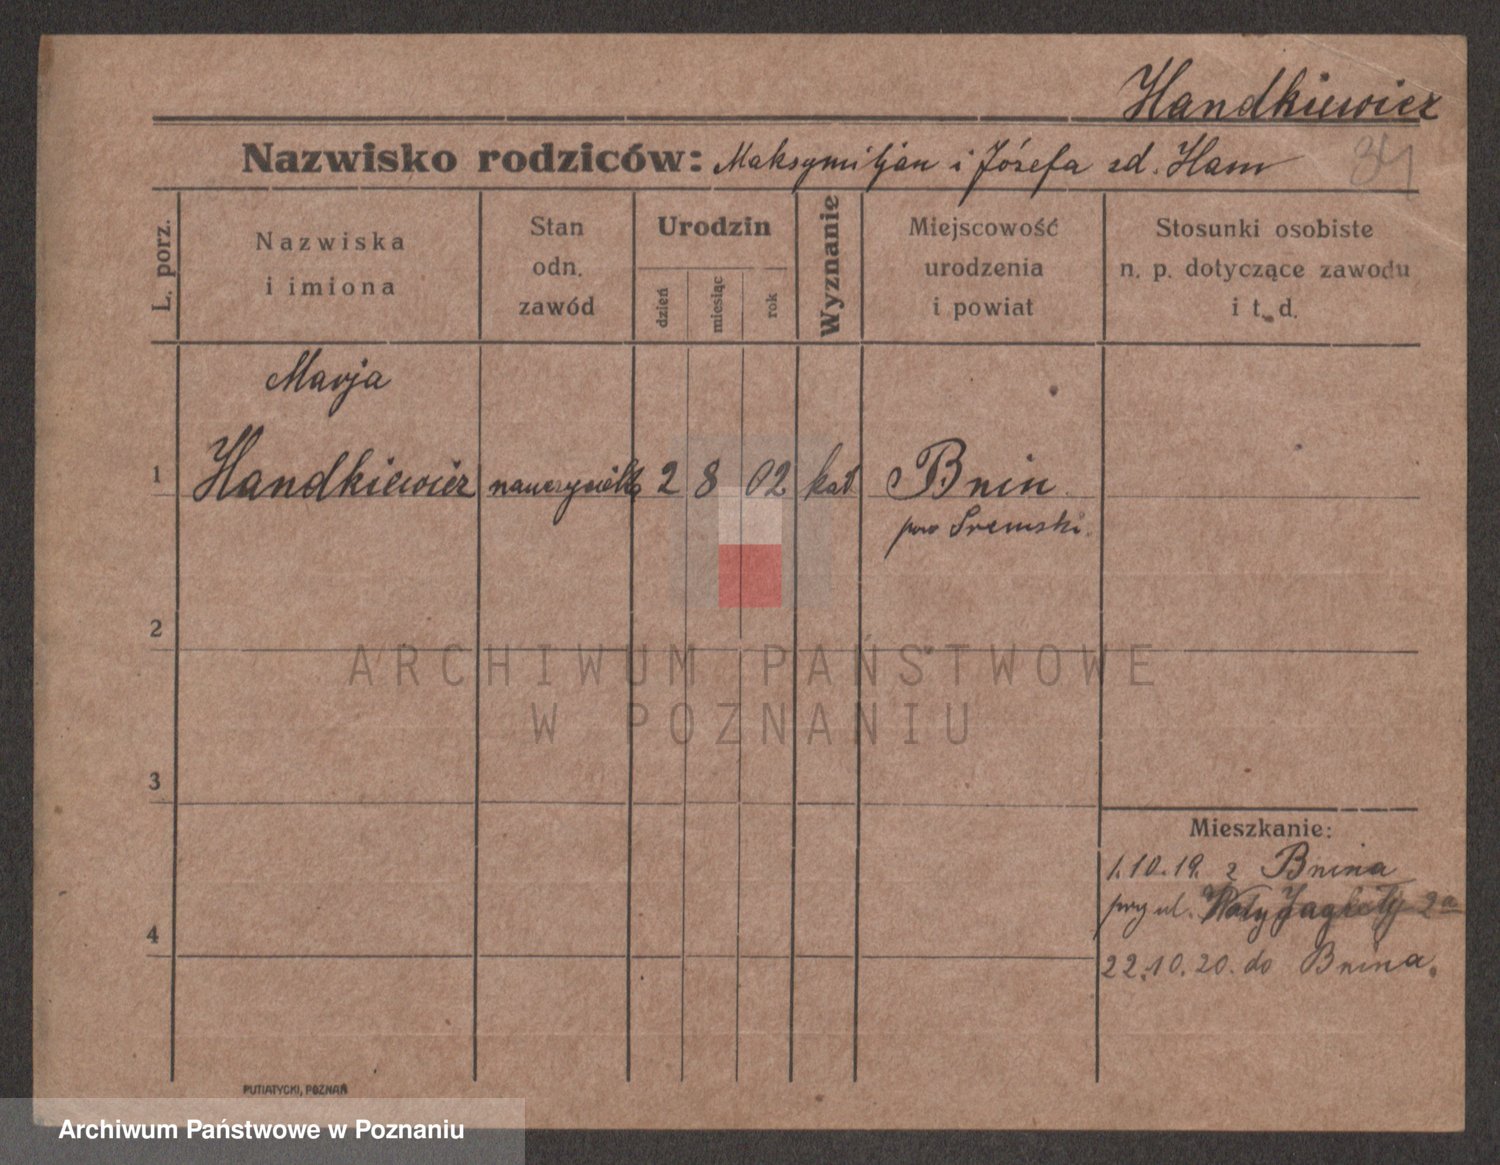 Handkiewicz
Nazwisko rodziców: Maksymiljan i Józefa zd. Ham
34
L. porz.
Nazwiska
i imiona
Stan
odn.
zawód
Urodzin
dzień
miesiąc
rok
Wyznanie
Miejscowość
urodzenia
i powiat
Stosunki osobiste
n. p. dotyczące zawodu
i t. d.
Marja
1 Handkiewicz 2 8 02 kat Bnin
pow Śremski.
2
3
4
Mieszkanie:
1.10.19. z Bnina
przy ul. Jagiełły 2a
22.10.20. do Bnina.
PUTIATYCKI, POZNAŃ
ARCHIWUM PAŃSTWOWE
W POZNANIU
Archiwum Państwowe w Poznaniu